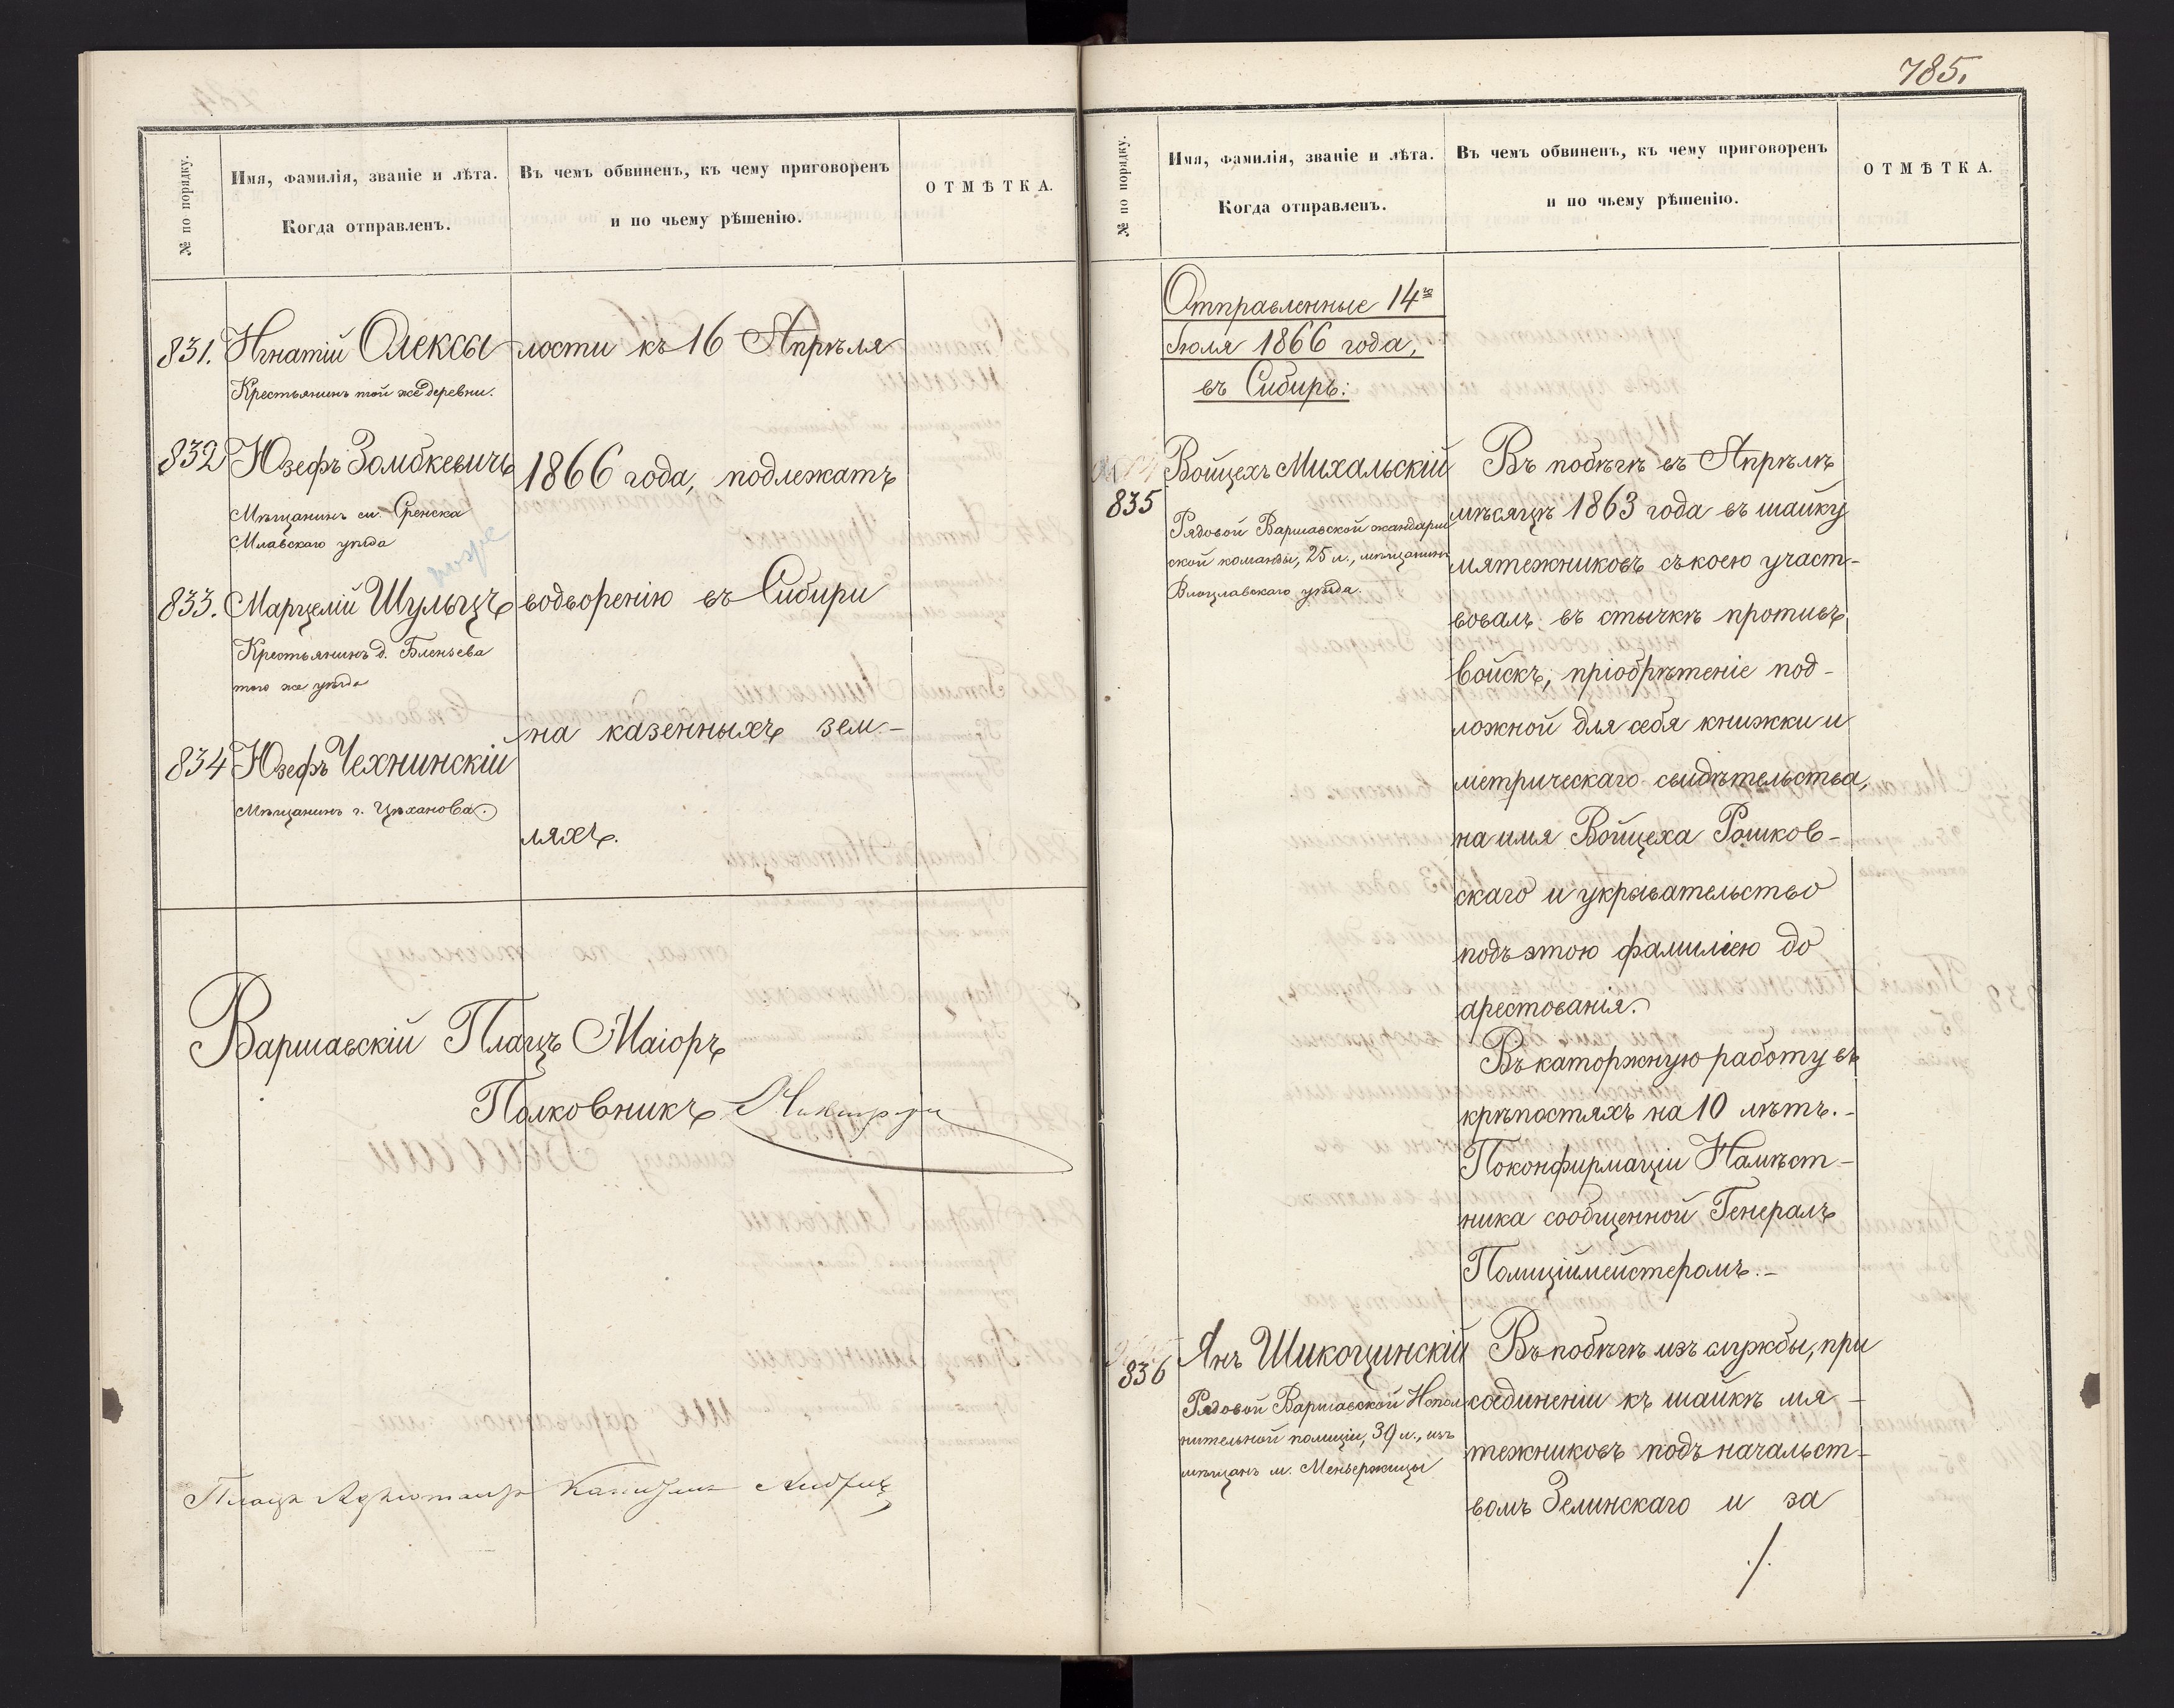 № по порядку.
Имя, фамилія, званіе и лѣта.
Когда отправленъ.
Въ чемъ обвиненъ, къ чему приговоренъ
и по чьему рѣшенію.
ОТМѢТКА.
831. Игнатій Олексы
Крестьянинъ той же деревни.
832 Юзефъ Зомбкевичъ
Мѣщанинъ м. Сренска
Млавскаго уѣзда
833. Марцелій Шульцъ
Крестьянинъ д.
того же уѣзда
834 Юзефъ Чехнинскій
Мѣщанинъ г. Цѣханова.
лости къ 16 Апрѣля
1866 года, подлежатъ
водворенію въ Сибири
на казенныхъ зем-
ляхъ.
Варшавскій Плацъ Маіоръ
Полковникъ
Плацъ Адъютантъ Капитанъ
785.
№ по порядку.
Имя, фамилія, званіе и лѣта.
Когда отправленъ.
Въ чемъ обвиненъ, къ чему приговоренъ
и по чьему рѣшенію.
ОТМѢТКА.
Отправленные 14го
Іюля 1866 года,
въ Сибирь:
835
Войцехъ Михальскій
Рядовой Варшавской жандарм
ской команды, 25 л., мѣщанинъ
Влоцлавскаго уѣзда.
Въ побѣгѣ въ Апрѣлѣ
мѣсяцѣ 1863 года въ шайку
мятежниковъ съ коею участ-
вовалъ въ стычкѣ противъ
войскъ; пріобрѣтеніе под-
ложной для себя книжки и
метрическаго свидѣтельства,
на имя Войцеха Рошков-
скаго и укрывательство
подъ этою фамиліею до
арестованія.
Въ каторжную работу въ
крѣпостяхъ на 10 лѣтъ.-
По конфирмаціи Намѣст-
ника сообщенной Генералъ
Полиціймейстеромъ.-
836
Янъ Шикоцинскій
Рядовой Варшавской Испол
нительной полиціи, 39 л., изъ
мѣщанъ м.
Въ побѣгѣ изъ службы, при
соединеніи къ шайкѣ мя-
тежниковъ подъ начальст-
вомъ Зелинскаго и за
./.